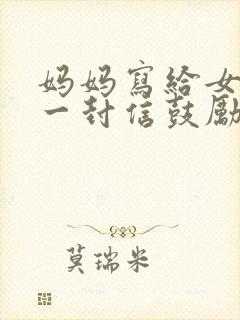 妈妈寫給女
一封信鼓勵
莫瑞米